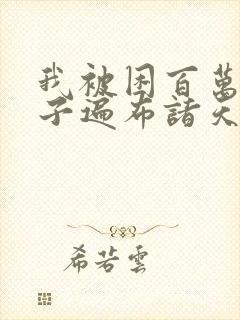 我被困百萬
子遍布諸天
希若雲